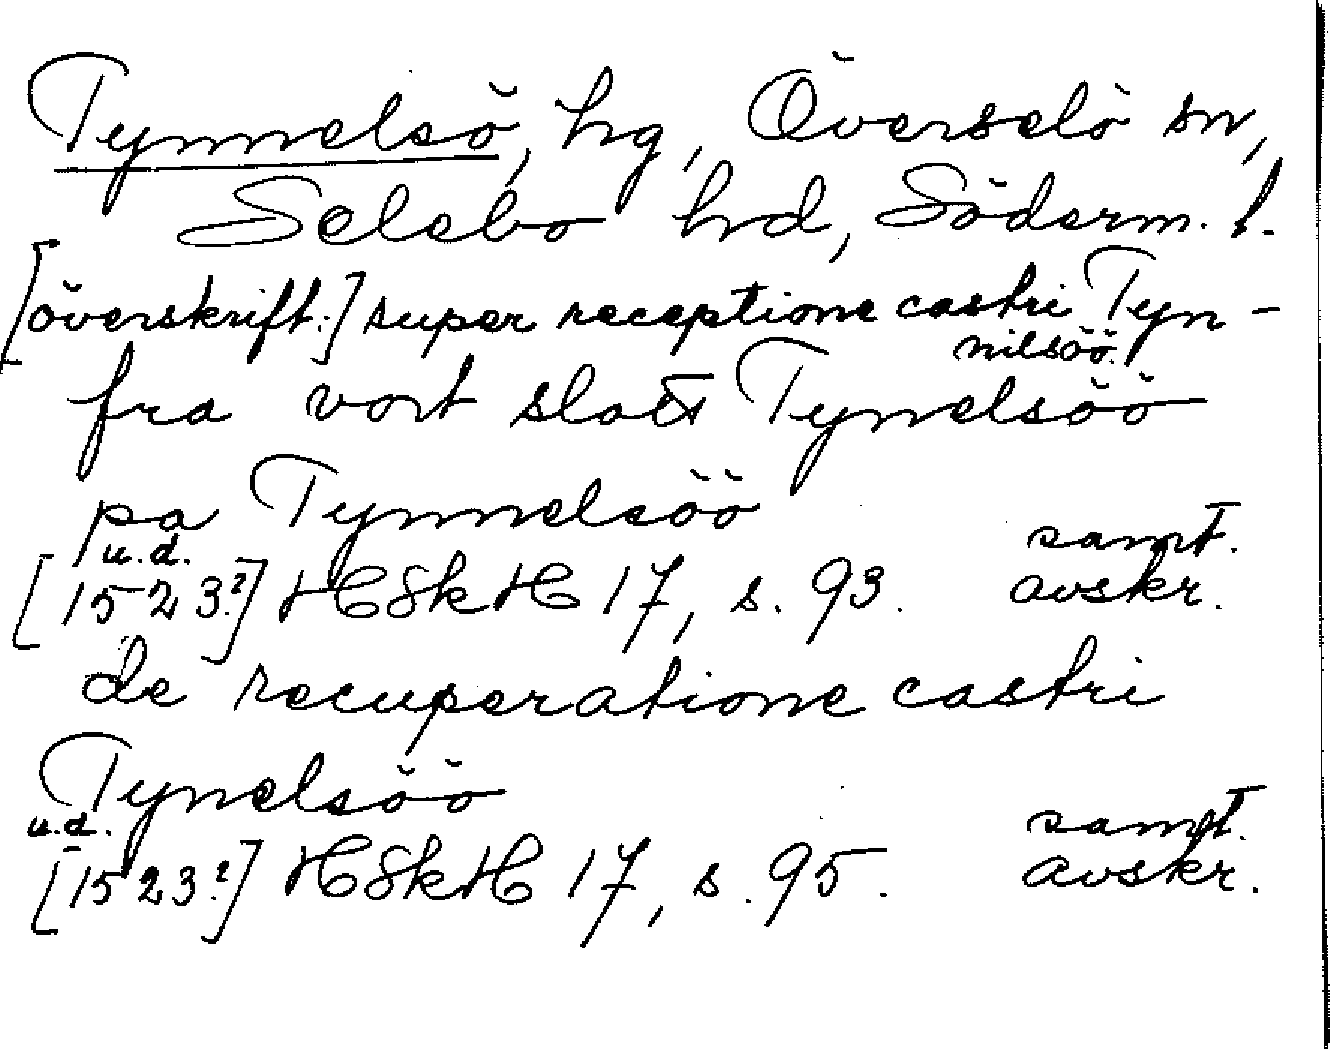 Tynnelsö, hg, Överselö sn,
Selebo hd, Söderm. l.
[överskrift:] super receptione castri Tyn-
nilsöö.
fra vort slott Tynelsöö
pa Tynnelsöö
u.d. samt.
[1523?] HSkH 17, s. 93. avskr.
de recuperatione castri
Tynelsöö
u.d. samt.
[1523?] HSkH 17, s. 95. avskr.